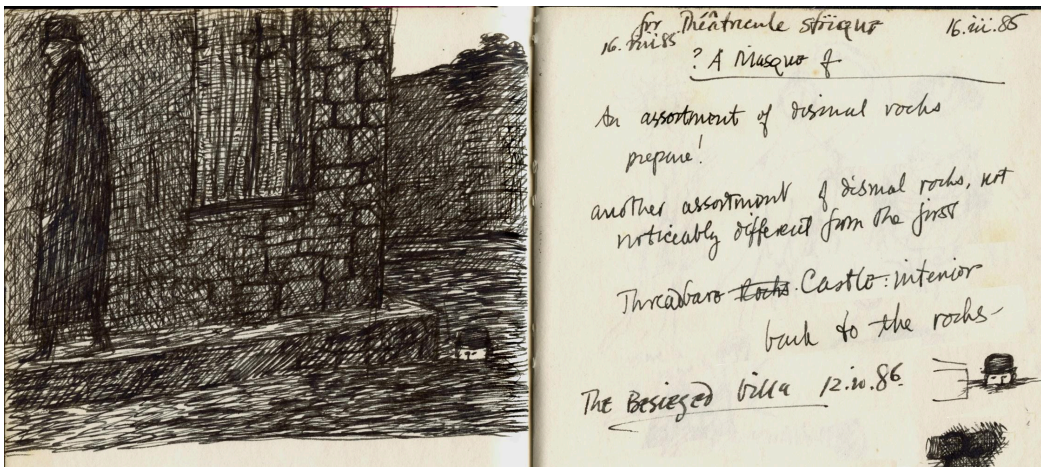 for Théâtricule Stoïque 16.iii.85
16.iii.85
? A Masque of
An assortment of dismal rocks
prepare!
another assortment of dismal rocks, not
noticeably different from the first
Threadbare Rocks Castle: interior
back to the rocks-
The Besieged Villa 12.iv.86